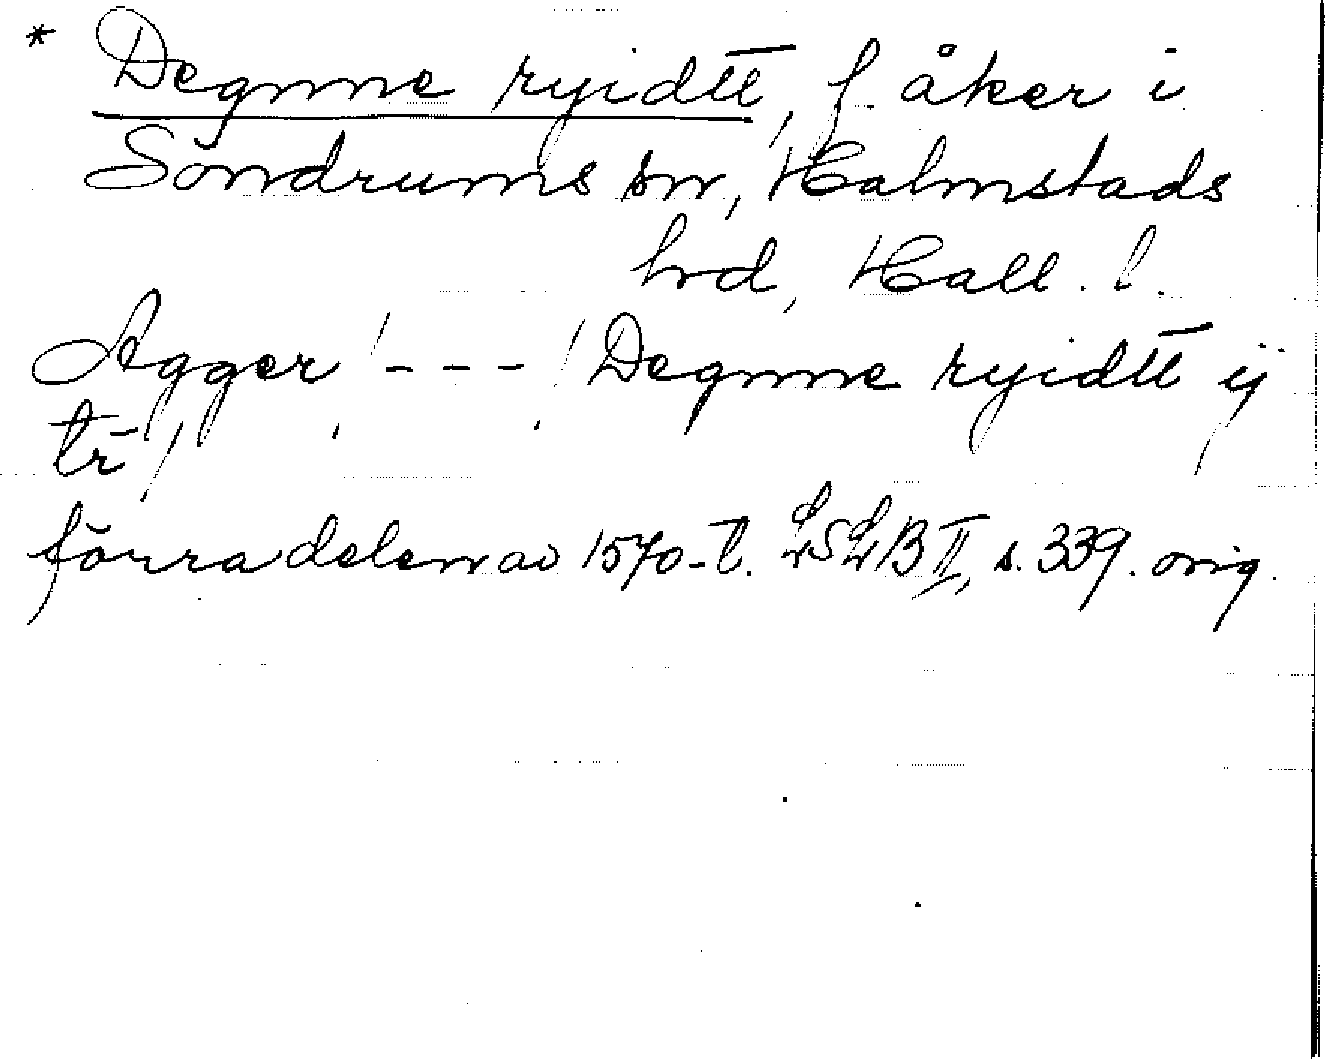 * Degnne ryidtt̅, f. åker i
Söndrums sn, Halmstads
hrd, Hall. l.
Agger / - - - / Degnne ryidtt̅ ij
tr̄ /
förra delen av 1570-t. LSLB II, s. 339. orig.